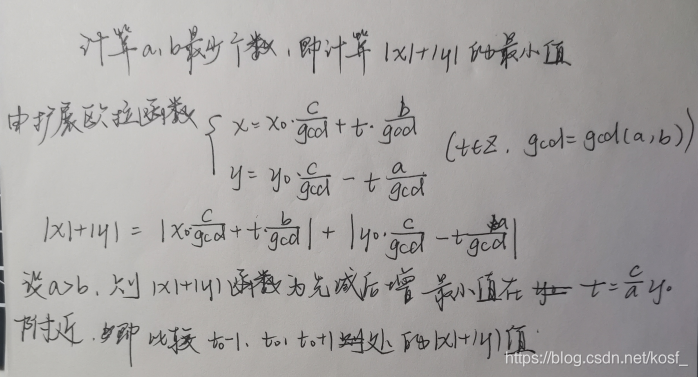 计算a,b最少个数,即计算|x|+|y|的最小值
由扩展欧拉函数 { x=x₀·c/gcd+t·b/gcd
y=y₀·c/gcd-t a/gcd (t∈Z, gcd=gcd(a,b))
|x|+|y| = |x₀·c/gcd+t·b/gcd| + |y₀·c/gcd-t a/gcd|
设a>b,则|x|+|y|函数为先减后增 最小值在 t=c/a y₀
附近,即比较 t₀-1, t₀, t₀+1 处的|x|+|y|值.
https://blog.csdn.net/kosf_